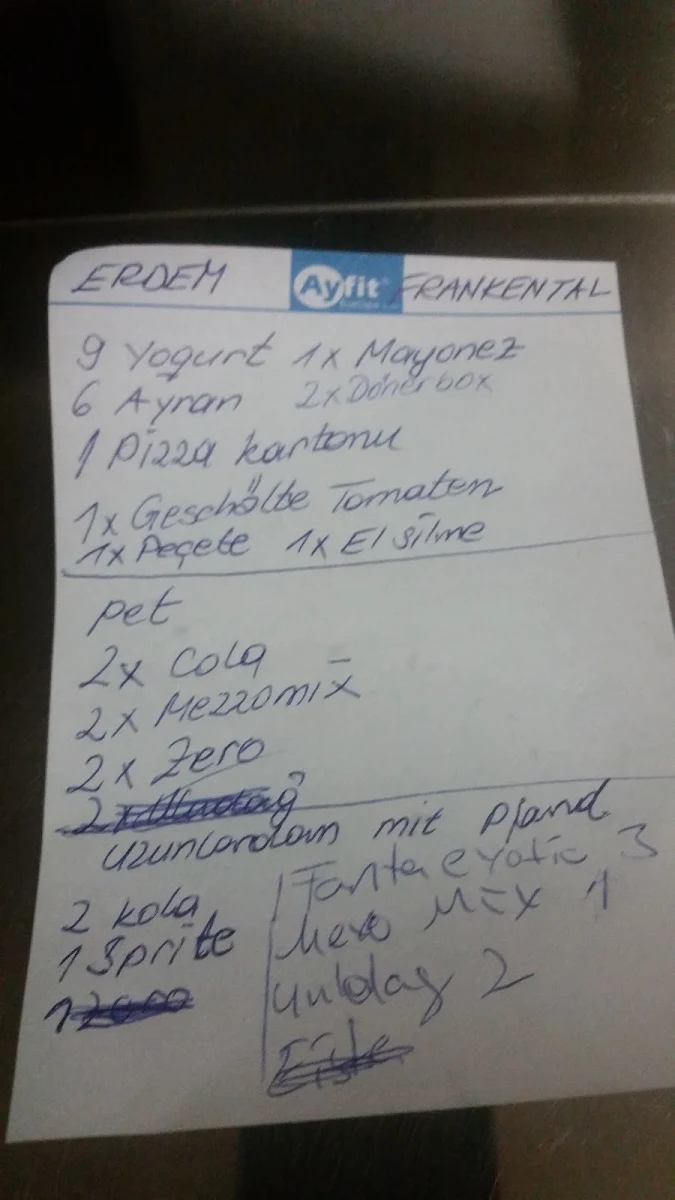 ERDEM Ayfit FRANKENTAL
9 Yogurt 1x Mayonez
6 Ayran 2x Dönerbox
1 Pizza kartonu
1x Geschälte Tomaten
1x Peçete 1x El silme
pet
2x Cola
2x Mezzomix
2x Zero
2x Uludag
uzunlardan mit Pfand
2 kola
1 Sprite
1 Zero
Fanta exotic 3
Mezo Mix 1
Uuldag 2